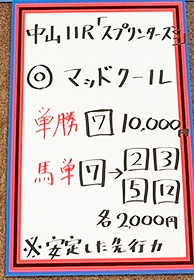 中山11R「スプリンターズS」
◎ マッドクール
単勝 7 10,000円
馬単 7→2 3
5 12
各2,000円
※安定した先行力